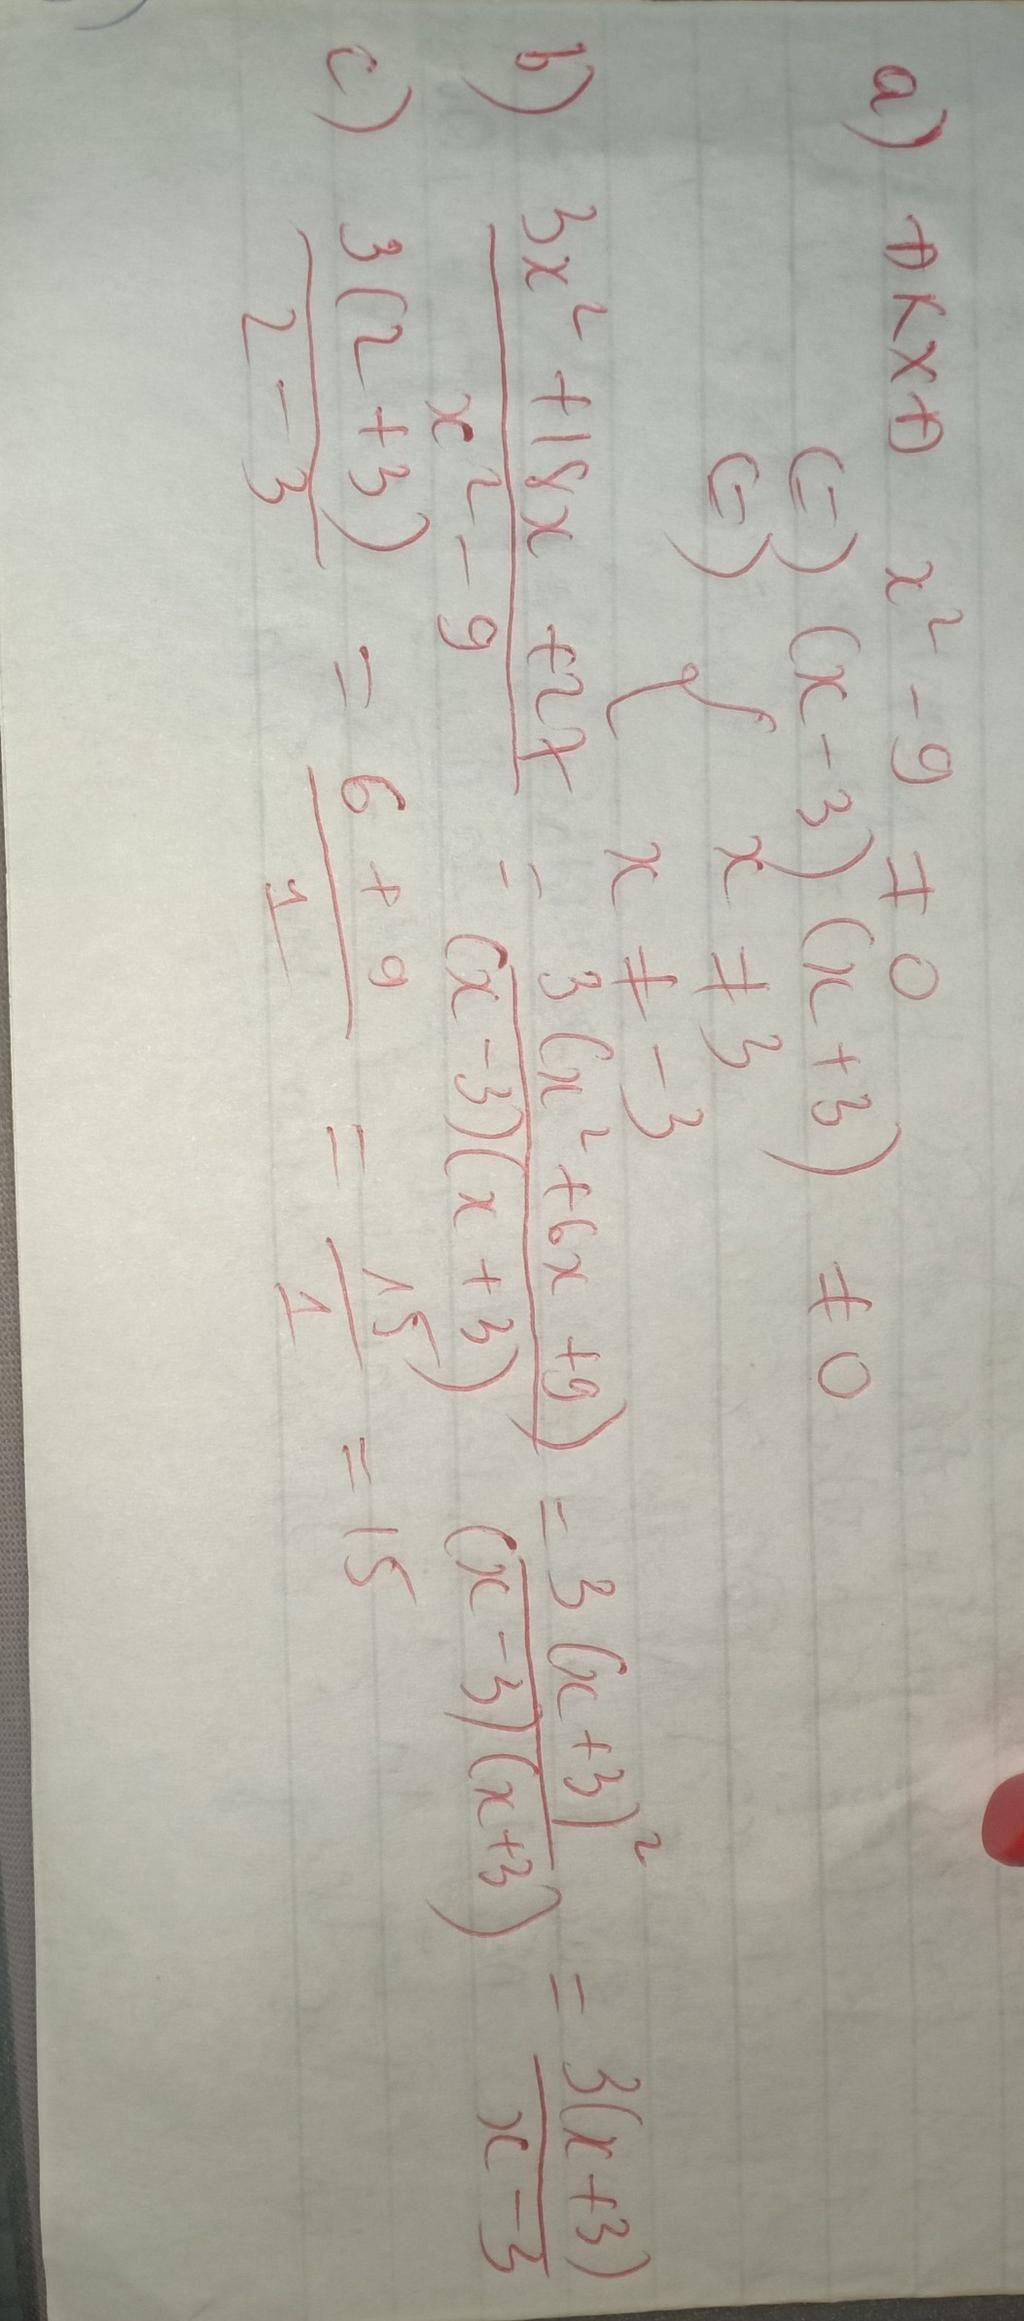 a) ĐKXĐ x² - 9 ≠ 0
(=) (x - 3)(x + 3) ≠ 0
(=) { x ≠ 3
x ≠ -3
b) \frac{3x² + 18x + 27}{x² - 9} = \frac{3(x² + 6x + 9)}{(x - 3)(x + 3)} = \frac{3(x + 3)²}{(x - 3)(x + 3)} = \frac{3(x + 3)}{x - 3}
c) \frac{3(2 + 3)}{2 - 3} = \frac{6 + 9}{1} = \frac{15}{1} = 15